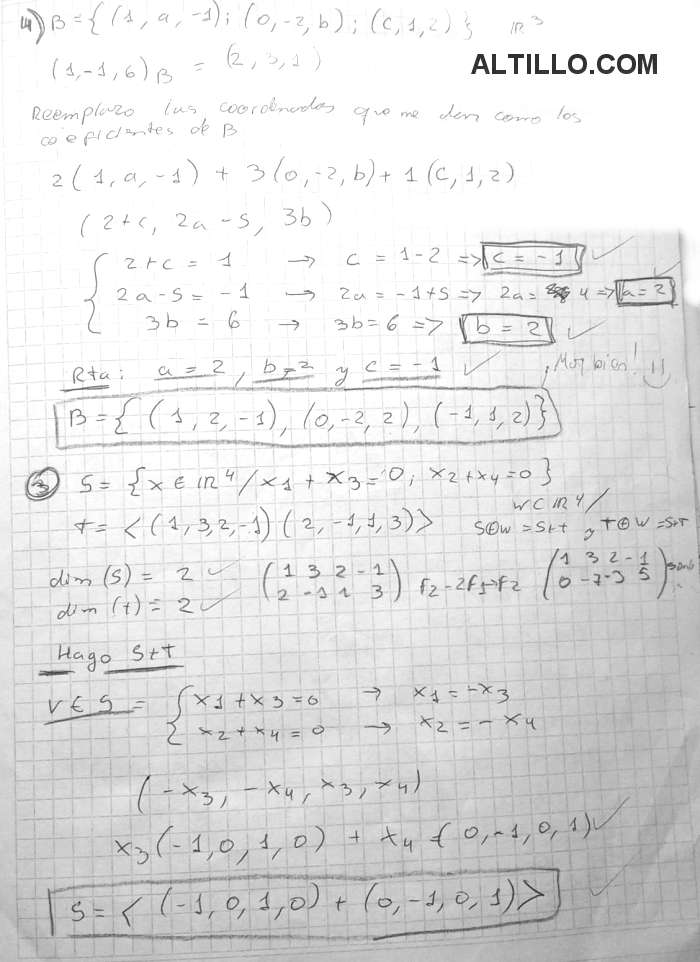 4) B = { (1, a, -1) ; (0, -2, b) ; (c, 1, 2) } IR³
(1, -1, 6)B = (2, 3, 1)
ALTILLO.COM
Reemplazo las coordenadas que me dan como los
coeficientes de B
2(1, a, -1) + 3(0, -2, b) + 1(c, 1, 2)
(2+c, 2a-5, 3b)
{ 2+c = 1 → c = 1-2 => c = -1 ✓
2a-5 = -1 → 2a = -1+5 => 2a = 4 => a = 2
3b = 6 → 3b = 6 => b = 2 ✓
Rta: a = 2, b = 2 y c = -1 ✓ ¡Muy bien!
B = { (1, 2, -1), (0, -2, 2), (-1, 1, 2) }
3) S = { x ∈ IR⁴ / x1 + x3 = 0 ; x2 + x4 = 0 }
W C IR⁴ /
T = < (1, 3, 2, -1) (2, -1, 1, 3) > S⊕W = S+T y T⊕W = S+T
dim (S) = 2 ✓ (1 3 2 -1
dim (T) = 2 ✓ 2 -1 1 3) F2 - 2F1 → F2 (1 3 2 -1
0 -7 -3 5)
Hago S+T
V ∈ S = { x1 + x3 = 0 → x1 = -x3
x2 + x4 = 0 → x2 = -x4
(-x3, -x4, x3, x4)
x3(-1, 0, 1, 0) + x4 (0, -1, 0, 1) ✓
S = < (-1, 0, 1, 0) + (0, -1, 0, 1) > ✓